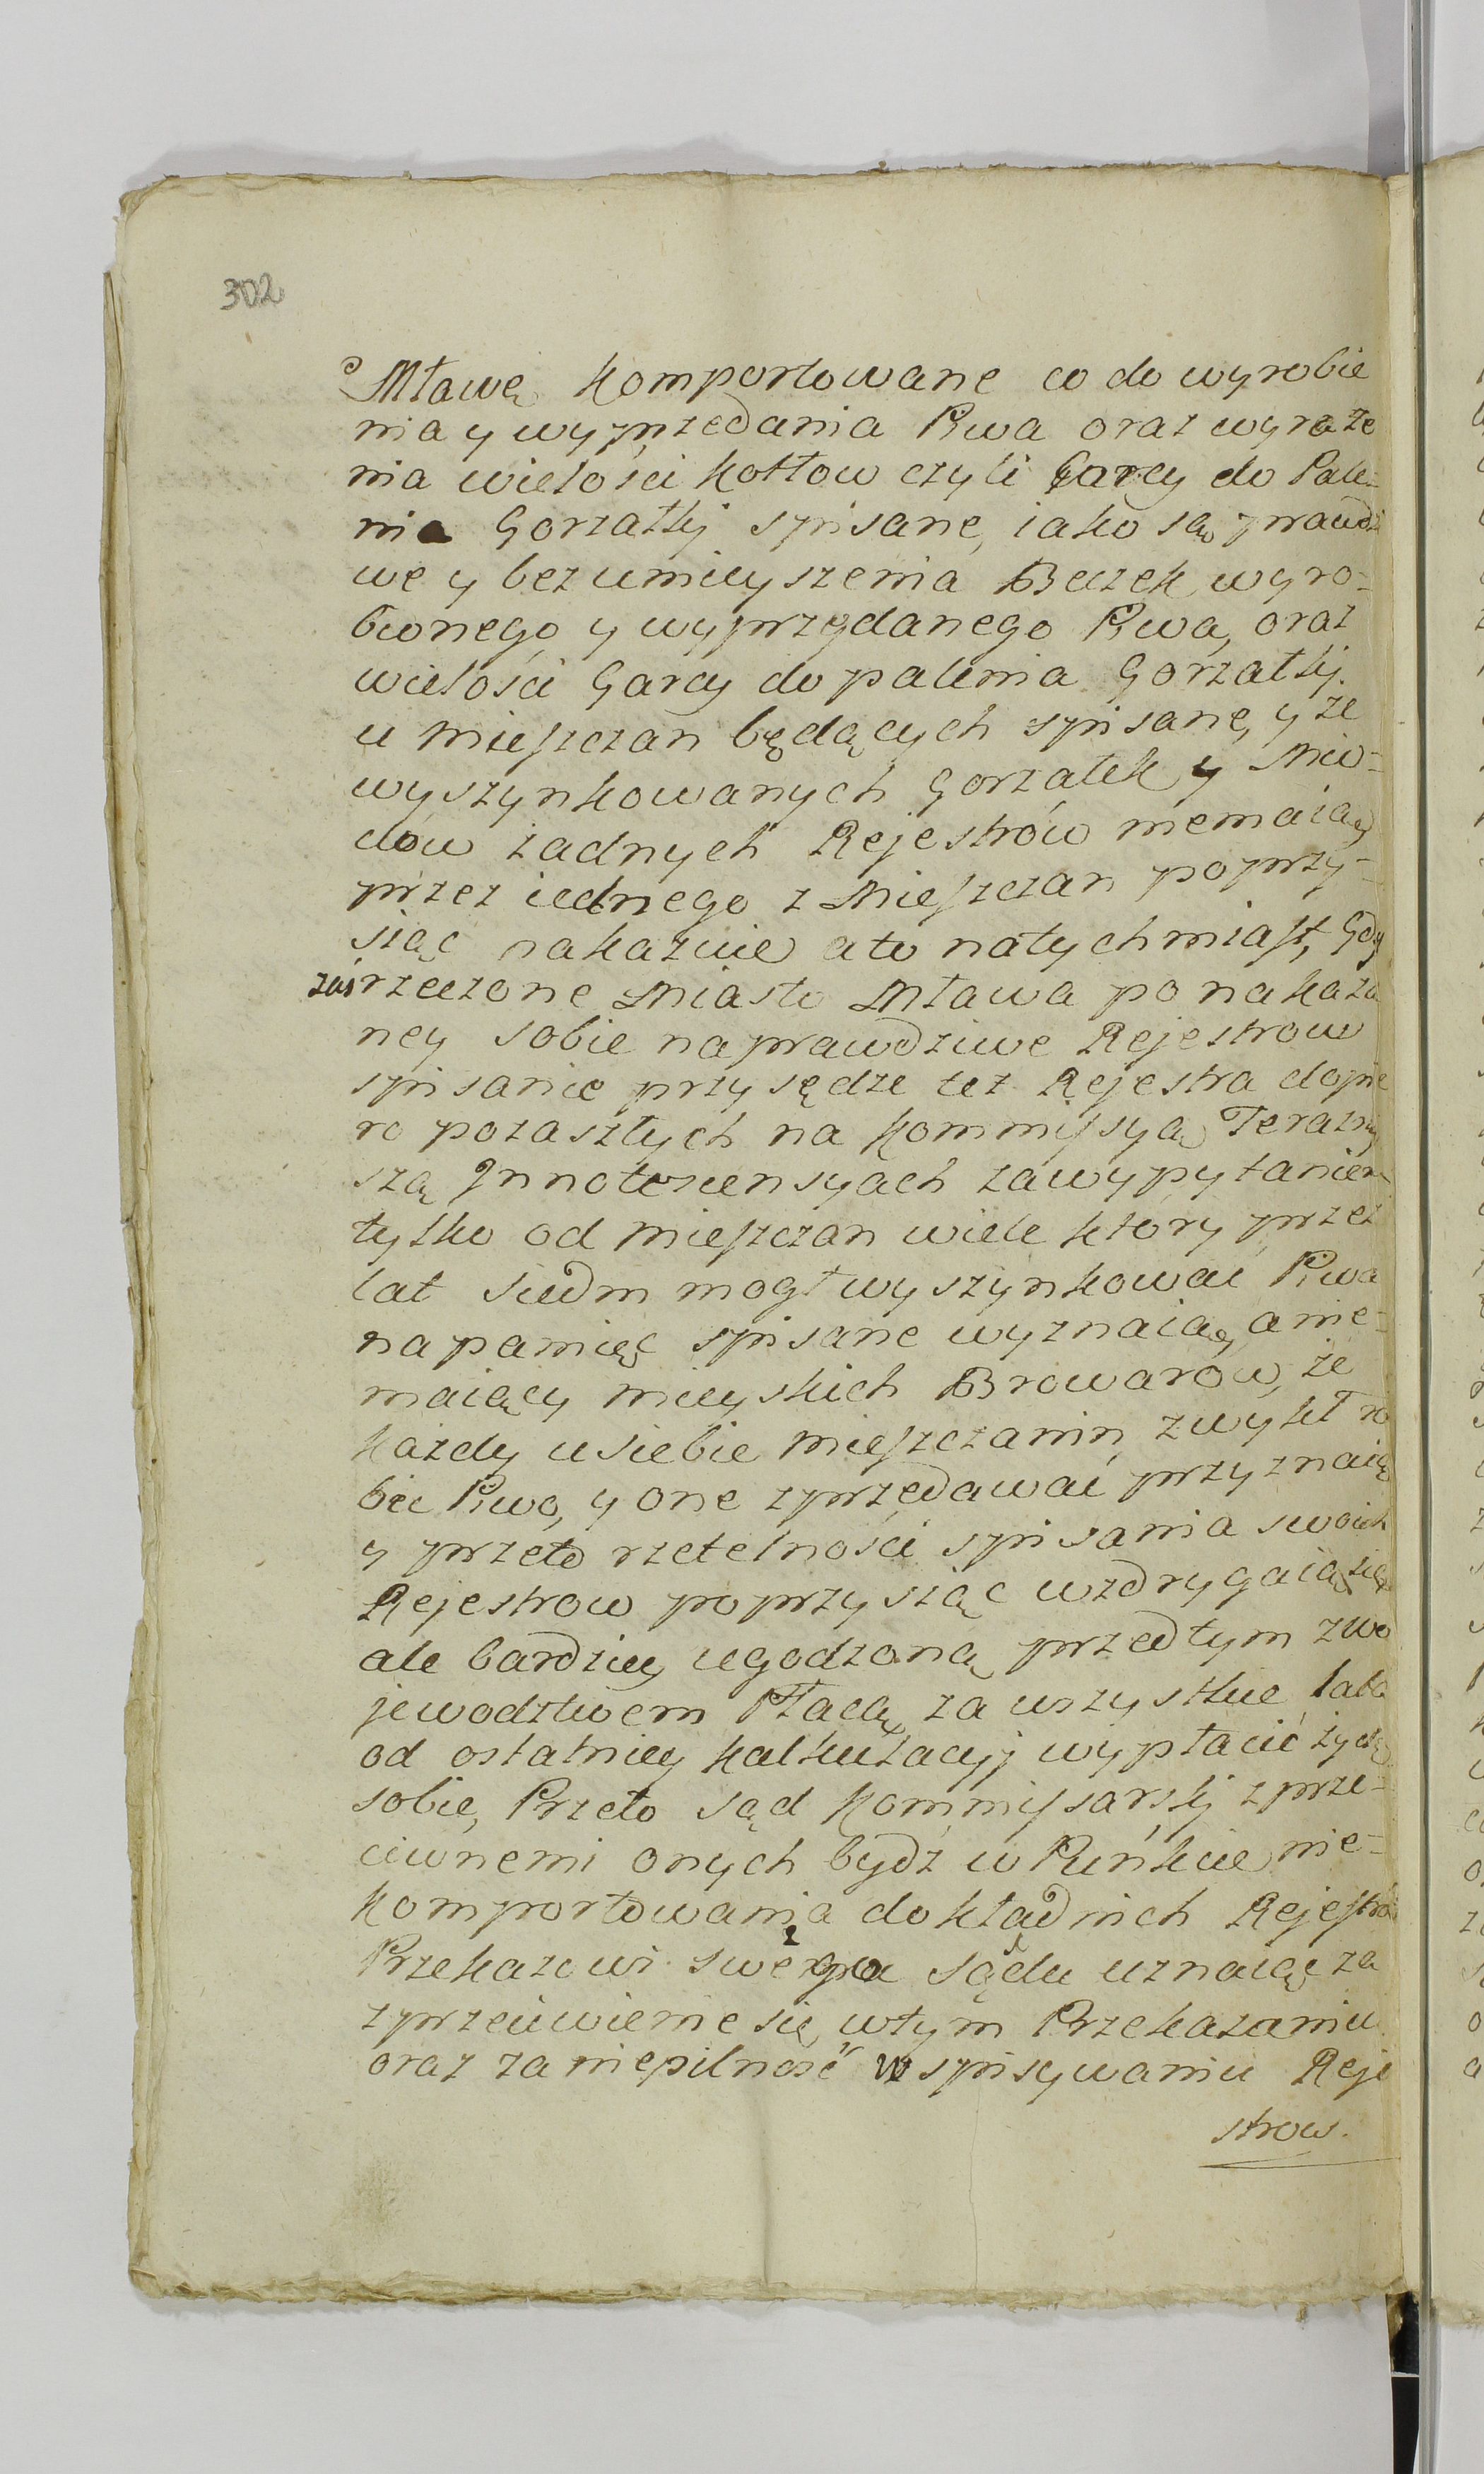 302
Mławę komportowane co do wyrobie
nia y wyprzedania Piwa oraz wyraże
nia wielości kotłow czyli Garcy do Pale=
nia Gorzałki spisane, iako są prawdzi
we y bez umnieyszenia Beczek wyro=
bionego y wyprzedanego Piwa, oraz
wielości Garcy do palenia Gorzałki
u Mieszczan będących spisane, y że
wyszynkowanych Gorzałek y Mio=
dów żadnych Rejestrów niemaią
przez iednego z Mieszczan poprzy=
siąc nakazuie a to natychmiast, Gdy
zaś rzeczone Miasto Mława po nakaza
ney sobie na prawdziwe Rejestrow
spisanie przysędze też Rejestra dopie
ro po zaszłych na Kommissyą Terazniey
szą Innotescensyach za wypytaniem
tylko od Mieszczan wiele ktory przez
lat siedm mogł wyszynkować Piwa
na pamięć spisane wyznaią, a nie=
maiący mieyskich Browarow, że
każdy u siebie Mieszczanin zwykł ro
bić Piwo, y one zprzedawać przyznaią
y przeto rzetelności spisania swoich
Rejestrow poprzysiąc wzdrygaią się
ale bardziey ugodzoną przedtym z Wo
jewodztwem Płacą za wszystkie lata
od ostatniey kalkulacyj wypłacić życzą
sobie, Przeto Sąd Kommissarski zprze=
ciwnemi onych bydź w Punkcie nie=
komportowania dokładnich Rejestrów
Przekazowi swego Sądu uznaiąc za
zprzeciwienie się w tym Przekazaniu
oraz za niepilność w spisywaniu Reje
strow.